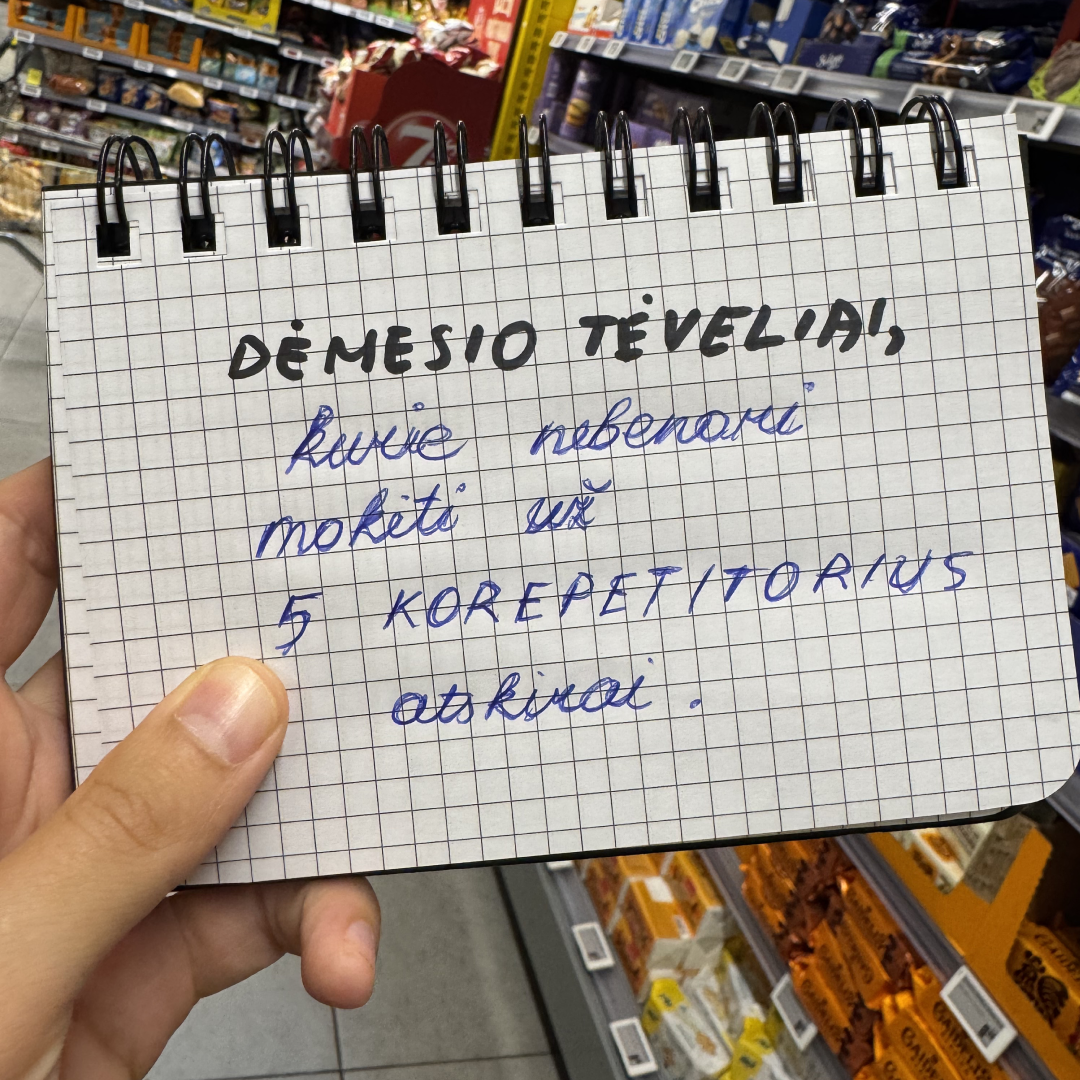 DĖMESIO TĖVELIAI,
kurie nebenori
mokėti už
5 KOREPETITORIUS
atskirai.
7